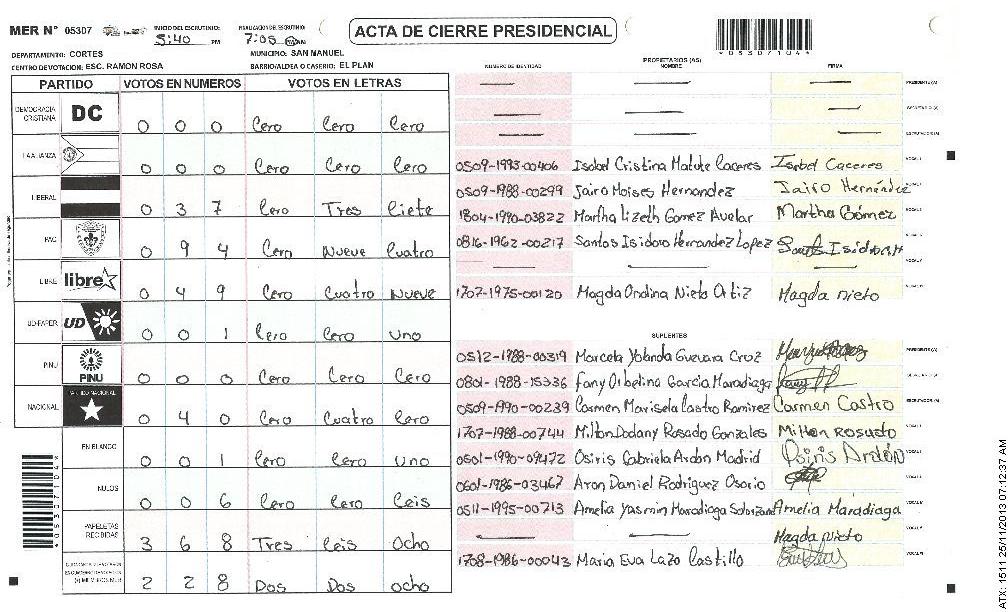 MER N° 05307 INICIO DEL ESCRUTINIO: 5:40 PM FINALIZACION DEL ESCRUTINIO: 7:05
ACTA DE CIERRE PRESIDENCIAL
*05307104*
DEPARTAMENTO: CORTES MUNICIPIO: SAN MANUEL
CENTRO DE VOTACION: ESC. RAMON ROSA BARRIO/ALDEA O CASERIO: EL PLAN
PARTIDO VOTOS EN NUMEROS VOTOS EN LETRAS
DEMOCRACIA CRISTIANA DC 0 0 0 Cero Cero Cero
LA ALIANZA 0 0 0 Cero Cero Cero
LIBERAL 0 3 7 Cero Tres Ciete
PAC 0 9 4 Cero Nueve Cuatro
LIBRE libre 0 4 9 Cero Cuatro Nueve
UD-FAPER UD 0 0 1 Cero Cero Uno
PINU PINU 0 0 0 Cero Cero Cero
NACIONAL PARTIDO NACIONAL 0 4 0 Cero Cuatro Cero
EN BLANCO 0 0 1 Cero Cero Uno
NULOS 0 0 6 Cero Cero Ceis
PAPELETAS RECIBIDAS 3 6 8 Tres Ceis Ocho
2 2 8 Dos Dos ocho
*05307104*
PROPIETARIOS (AS)
NUMERO DE IDENTIDAD NOMBRE FIRMA
PRESIDENTE(A)
SECRETARIO(A)
ESCRUTADOR(A)
0509-1993-00406 Isabel Cristina Matute Caceres Isabel Caceres VOCAL I
0509-1988-00299 Jairo Moises Hernandez Jairo Hernández
1804-1990-03822 Martha Lizeth Gomez Avelar Martha Gómez
0816-1962-00217 Santos Isidoro Hernandez Lopez
1707-1975-00120 Magda Ondina Nieto Ortiz Magda nieto
SUPLENTES
0512-1988-00319 Marcela Yolanda Guevara Cruz PRESIDENTE(A)
0801-1988-15336 Fany Orbelina Garcia Maradiaga SECRETARIO(A)
0509-1990-00239 Carmen Marisela Castro Ramirez Carmen Castro ESCRUTADOR(A)
1707-1988-00744 Milton Dodany Rosado Gonzales Milton Rosado
0501-1990-09472 Osiris Gabriela Ardon Madrid Osiris Ardón
0601-1986-03467 Aron Daniel Rodriguez Osorio
0511-1995-00713 Amelia Yasmin Maradiaga Solorzano Amelia Maradiaga
Magda nieto
1708-1986-00043 Maria Eva Lazo Castillo
ATX: 1511 25/11/2013 07:12:37 AM